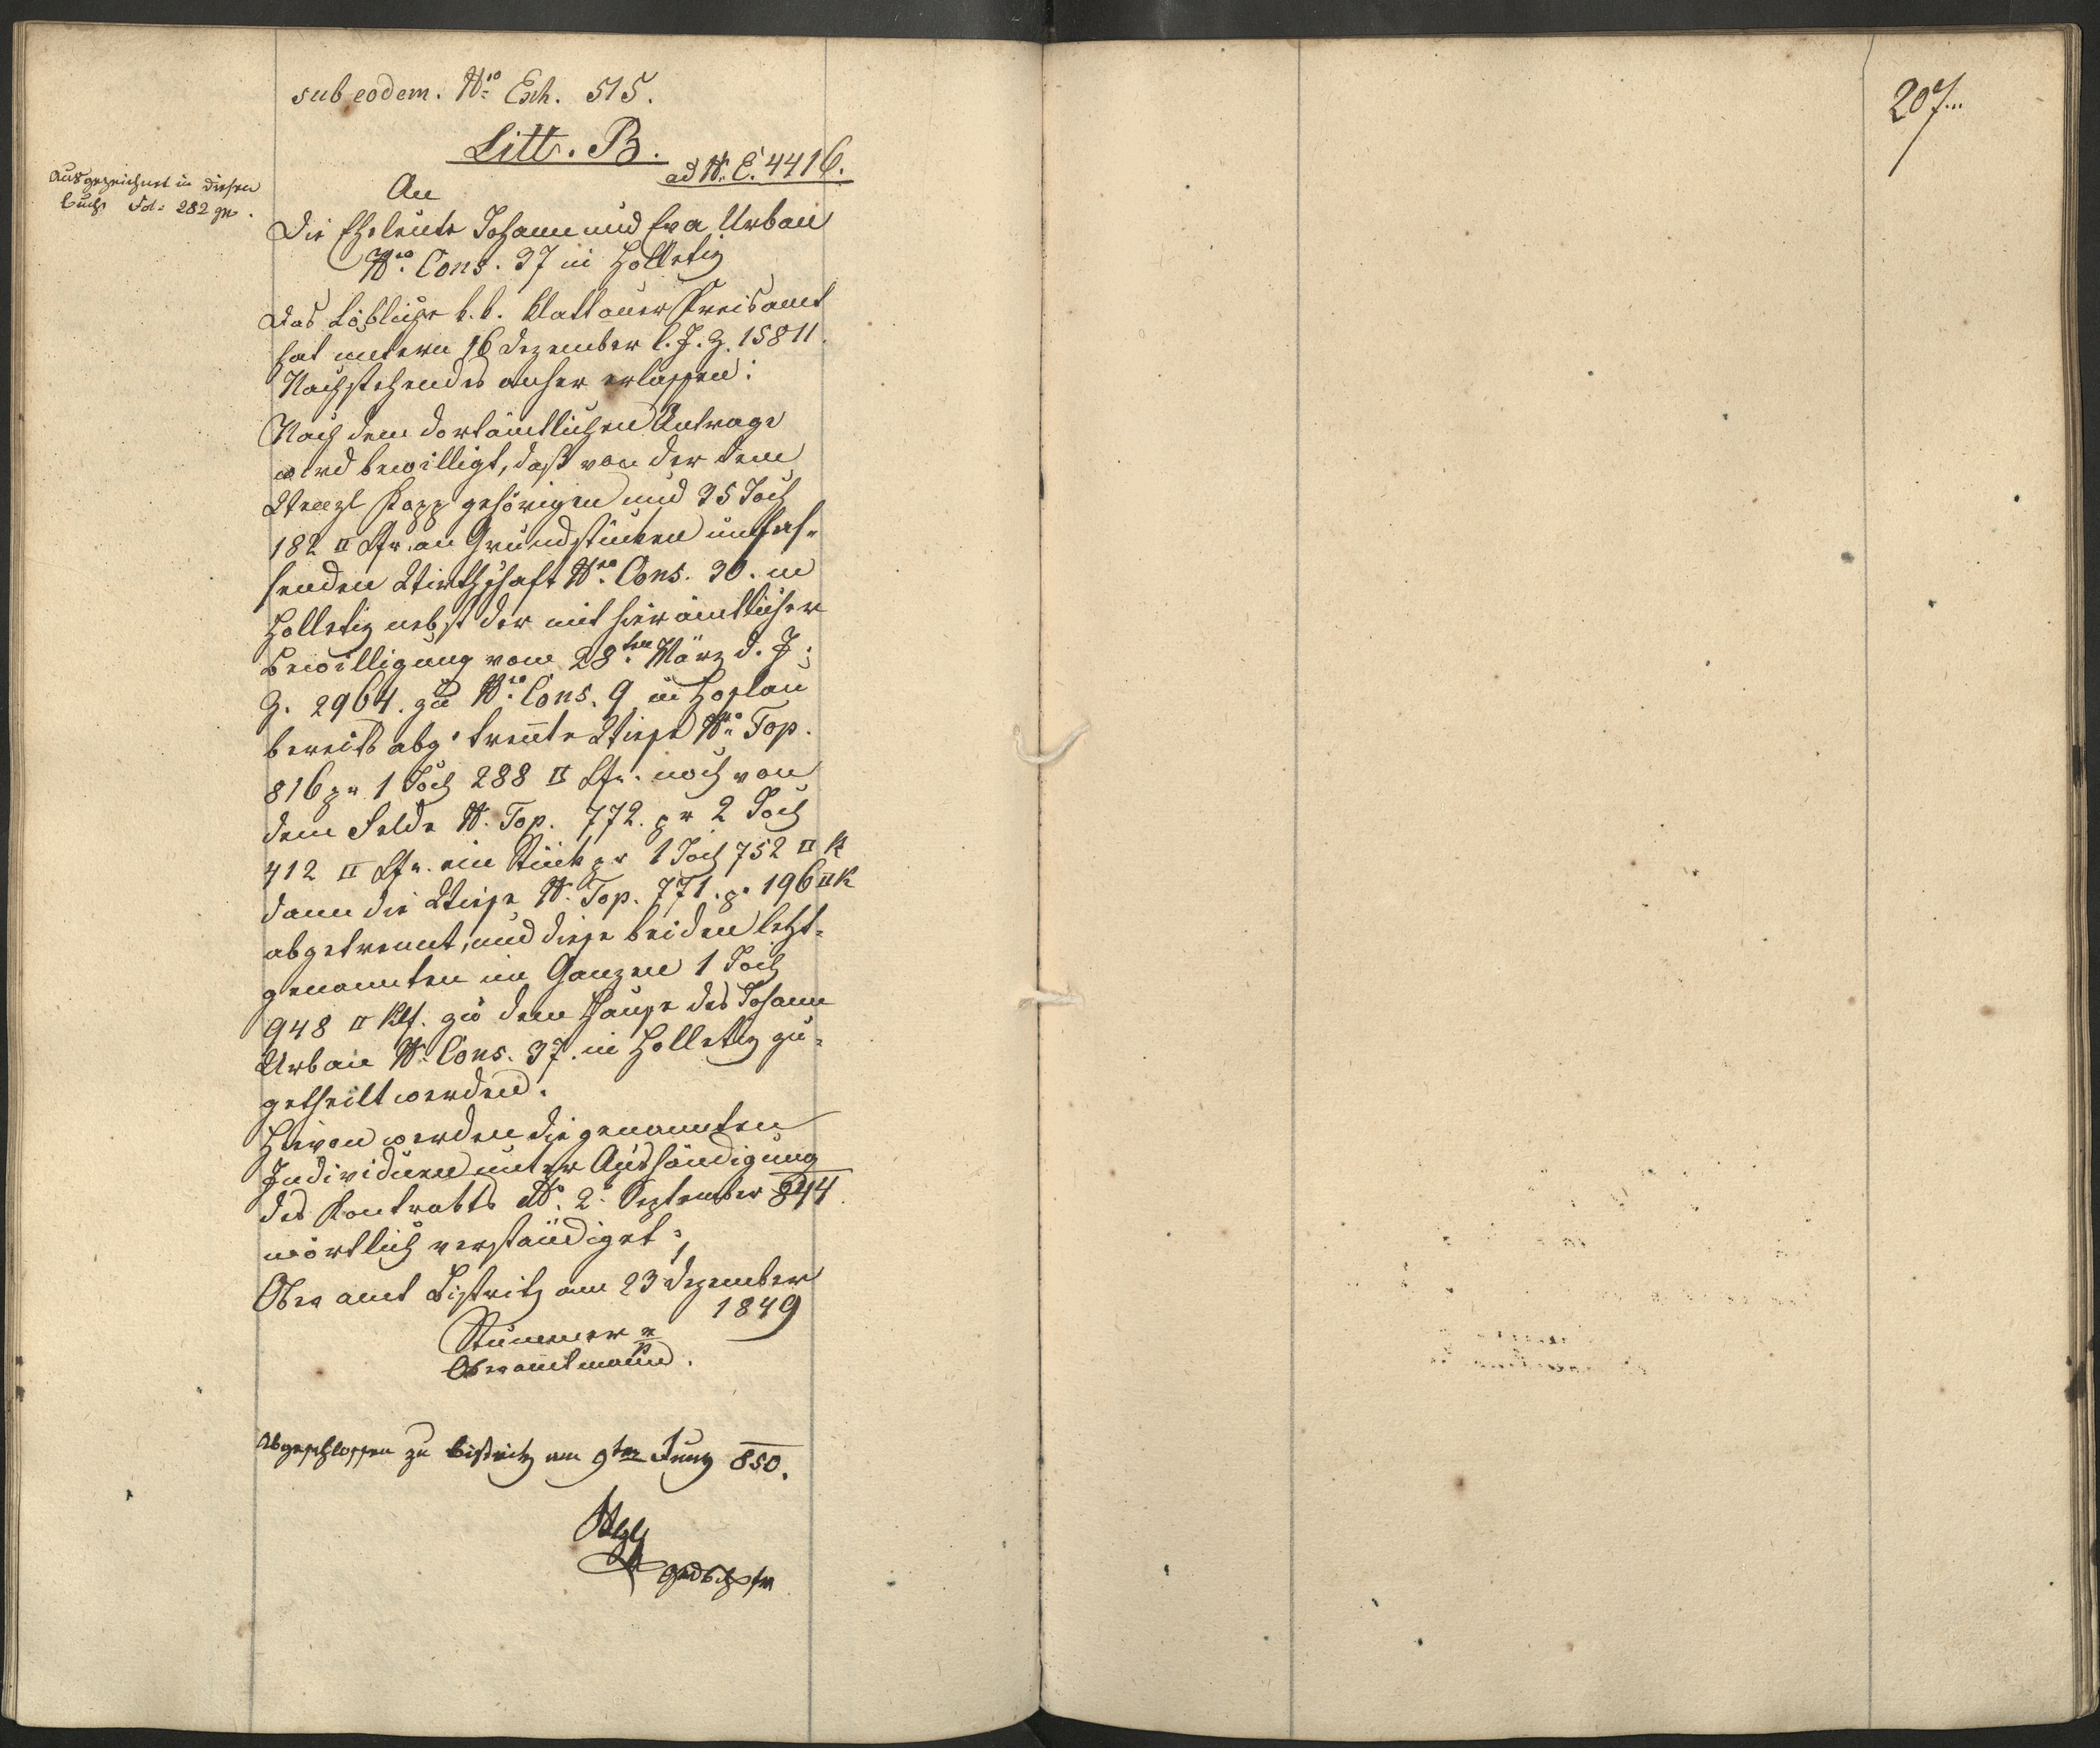 sub eodem. Nro Exh. 515.
Litt. B.
ad N. E. 4416.
Ausgezeichnet in diesen
Buch Fol: 282 
An
Die Eheleute Johann und Eva Urban
Nro Cons. 37 in Holletiz
Das Löbliche k. k. Klattauer Kreisamt
hat unterm 16 Dezember l. J. Z. 15811.
Nachstehendes anher erlassen:
Nach dem dortämtlichen Antrage
wird bewilligt, daß von der dem
Wenzl Kopp gehörigen und 35 Joch
182 □ Kfr. an Grundstücken umfas-
senden Wirthschaft Nro Cons. 30. in
Holletiz nebst der mit hierämtlicher
Bewilligung vom 28ten März d. J.
Z. 2964. zu Nro Cons. 9 in Hoslau
bereits abgetrennte Wiese Nro Top.
816 pr 1 Joch 288 □ Kfr. noch von
dem Felde N. Top. 772. pr 2 Joch
412 □ Kfr. ein Stück pr 1 Joch 752 □ K
dann die Wiese N. Top. 771. pr 196 □ K
abgetrennt, und diese beiden letzt-
genannten im Ganzen 1 Joch
948 □ Klf. zu dem Hause des Johann
Urban N. Cons. 37. in Holletiz zu-
getheilt werden.
Hievon werden die genannten
Individuen unter Aushändigung
des Kontrakts dto. 2. September 844
wörtlich verständiget.
Oberamt Bistritz am 23 Dezember
1849
Stummer
Oberamtmann.
Abgeschlossen zu Bistritz am 9ten Juny 850.
207